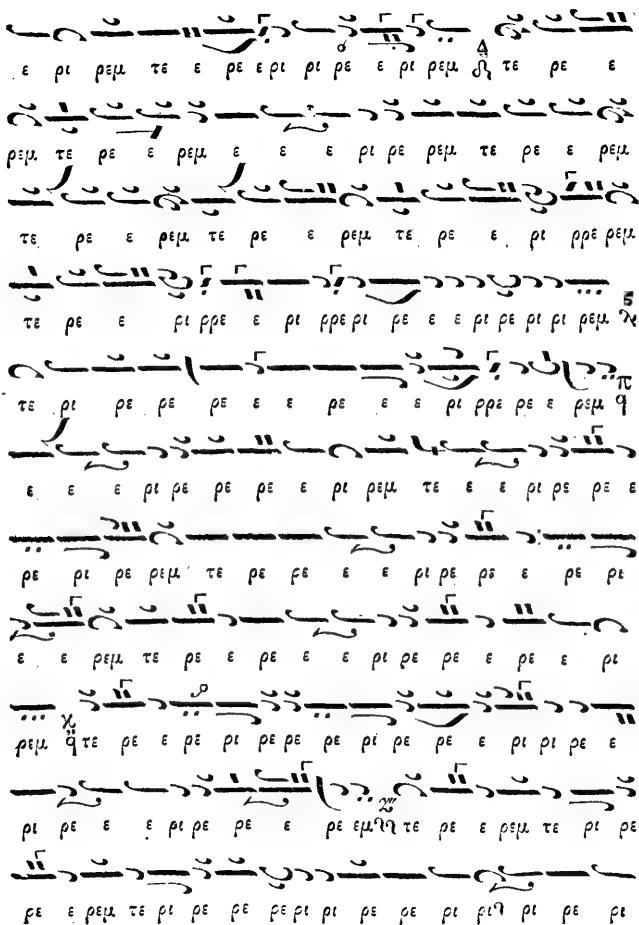 ε ρι ρεμ τε ε ρε ε ρι ρι ρε ε ρι ρεμ τε ρε ε
ρεμ τε ρε ε ρεμ ε ε ε ρι ρε ρεμ τε ρε ε ρεμ
τε ρε ε ρεμ τε ρε ε ρεμ τε ρε ε ρι ρρε ρεμ
τε ρε ε ρι ρρε ε ρι ρρε ρι ρε ε ε ρι ρε ρι ρι ρεμ
τε ρι ρε ρε ρε ε ε ρε ε ε ρι ρρε ρε ε ρεμ
ε ε ε ρι ρε ρε ρε ε ρι ρεμ τε ε ε ρι ρε ρε ε
ρε ρι ρε ρεμ τε ρε ρε ε ε ρι ρε ρε ε ρε ρι
ε ε ρεμ τε ρε ε ρε ε ε ρι ρε ρε ε ρε ρι
ρεμ τε ρε ε ρε ρι ρε ρε ρε ρι ρε ρε ε ρι ρι ρε ε
ρι ρε ε ε ρι ρε ρε ε ρε εμ τε ρε ε ρεμ τε ρι ρε
ρε ε ρεμ τε ρι ρε ρε ρε ρι ρι ρε ρε ρι ρι ρι ρε ρι